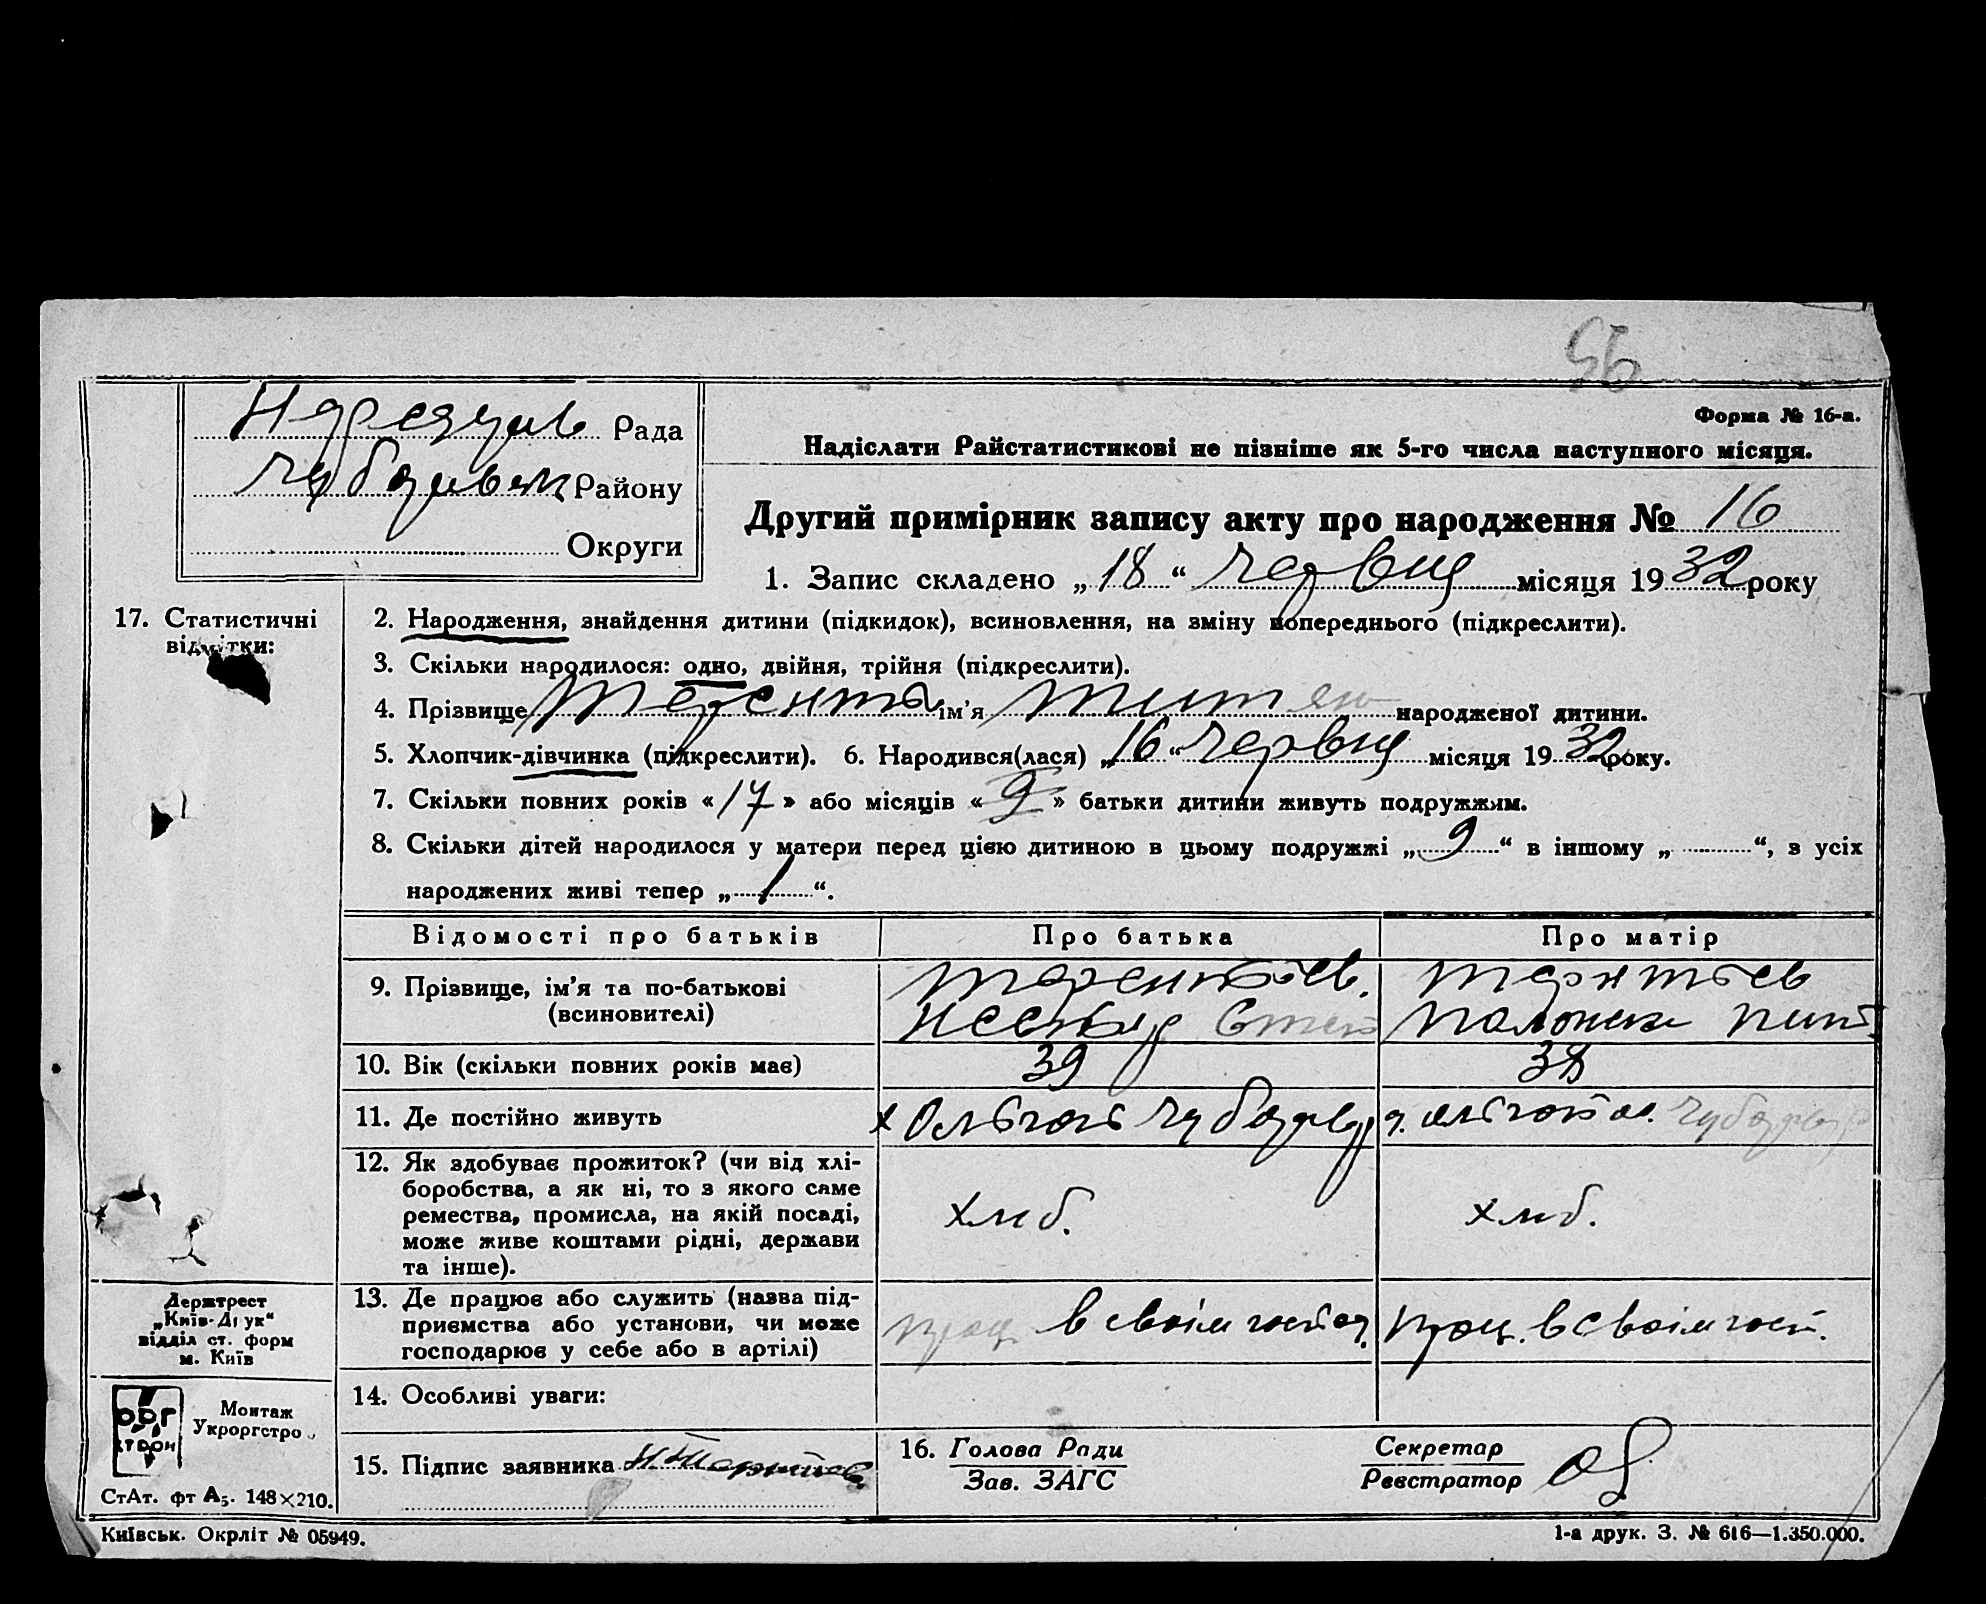 96
Форма № 16-а.
Рада
Надіслати Райстатистикові не пізніше як 5-го числа наступного місяця.
Району
Округи
Другий примірник запису акту про народження № 16
1. Запис складено „18“ червня місяця 1932 року
17. Статистичні відмітки:
2. Народження, знайдення дитини (підкидок), всиновлення, на зміну попереднього (підкреслити).
3. Скільки народилося: одно, двійня, трійня (підкреслити).
4. Прізвище ім'я народженої дитини.
5. Хлопчик-дівчинка (підкреслити). 6. Народився(лася) „16“ червня місяця 1932 року.
7. Скільки повних років «17» або місяців « » батьки дитини живуть подружжям.
8. Скільки дітей народилося у матери перед цією дитиною в цьому подружжі „9“ в іншому „ “, з усіх
народжених живі тепер „1“.
Відомості про батьків Про батька Про матір
9. Прізвище, ім'я та по-батькові
(всиновителі)
10. Вік (скільки повних років має) 39 38
11. Де постійно живуть
12. Як здобуває прожиток? (чи від хлі-
боробства, а як ні, то з якого саме
ремества, промисла, на якій посаді,
може живе коштами рідні, держави
та інше).
хліб. хліб.
13. Де працює або служить (назва під-
приємства або установи, чи може
господарює у себе або в артілі)
прац. в своїм господ. прац. в своїм госп.
14. Особливі уваги:
15. Підпис заявника
16. Голова Ради
Зав. ЗАГС
Секретар
Реєстратор
Держтрест
„Київ-Друк“
відділ ст. форм
м. Київ
Монтаж
Укроргстро
СтАт. фт А5. 148×210.
Київськ. Окрліт № 05949.
1-а друк. З. № 616—1.350.000.